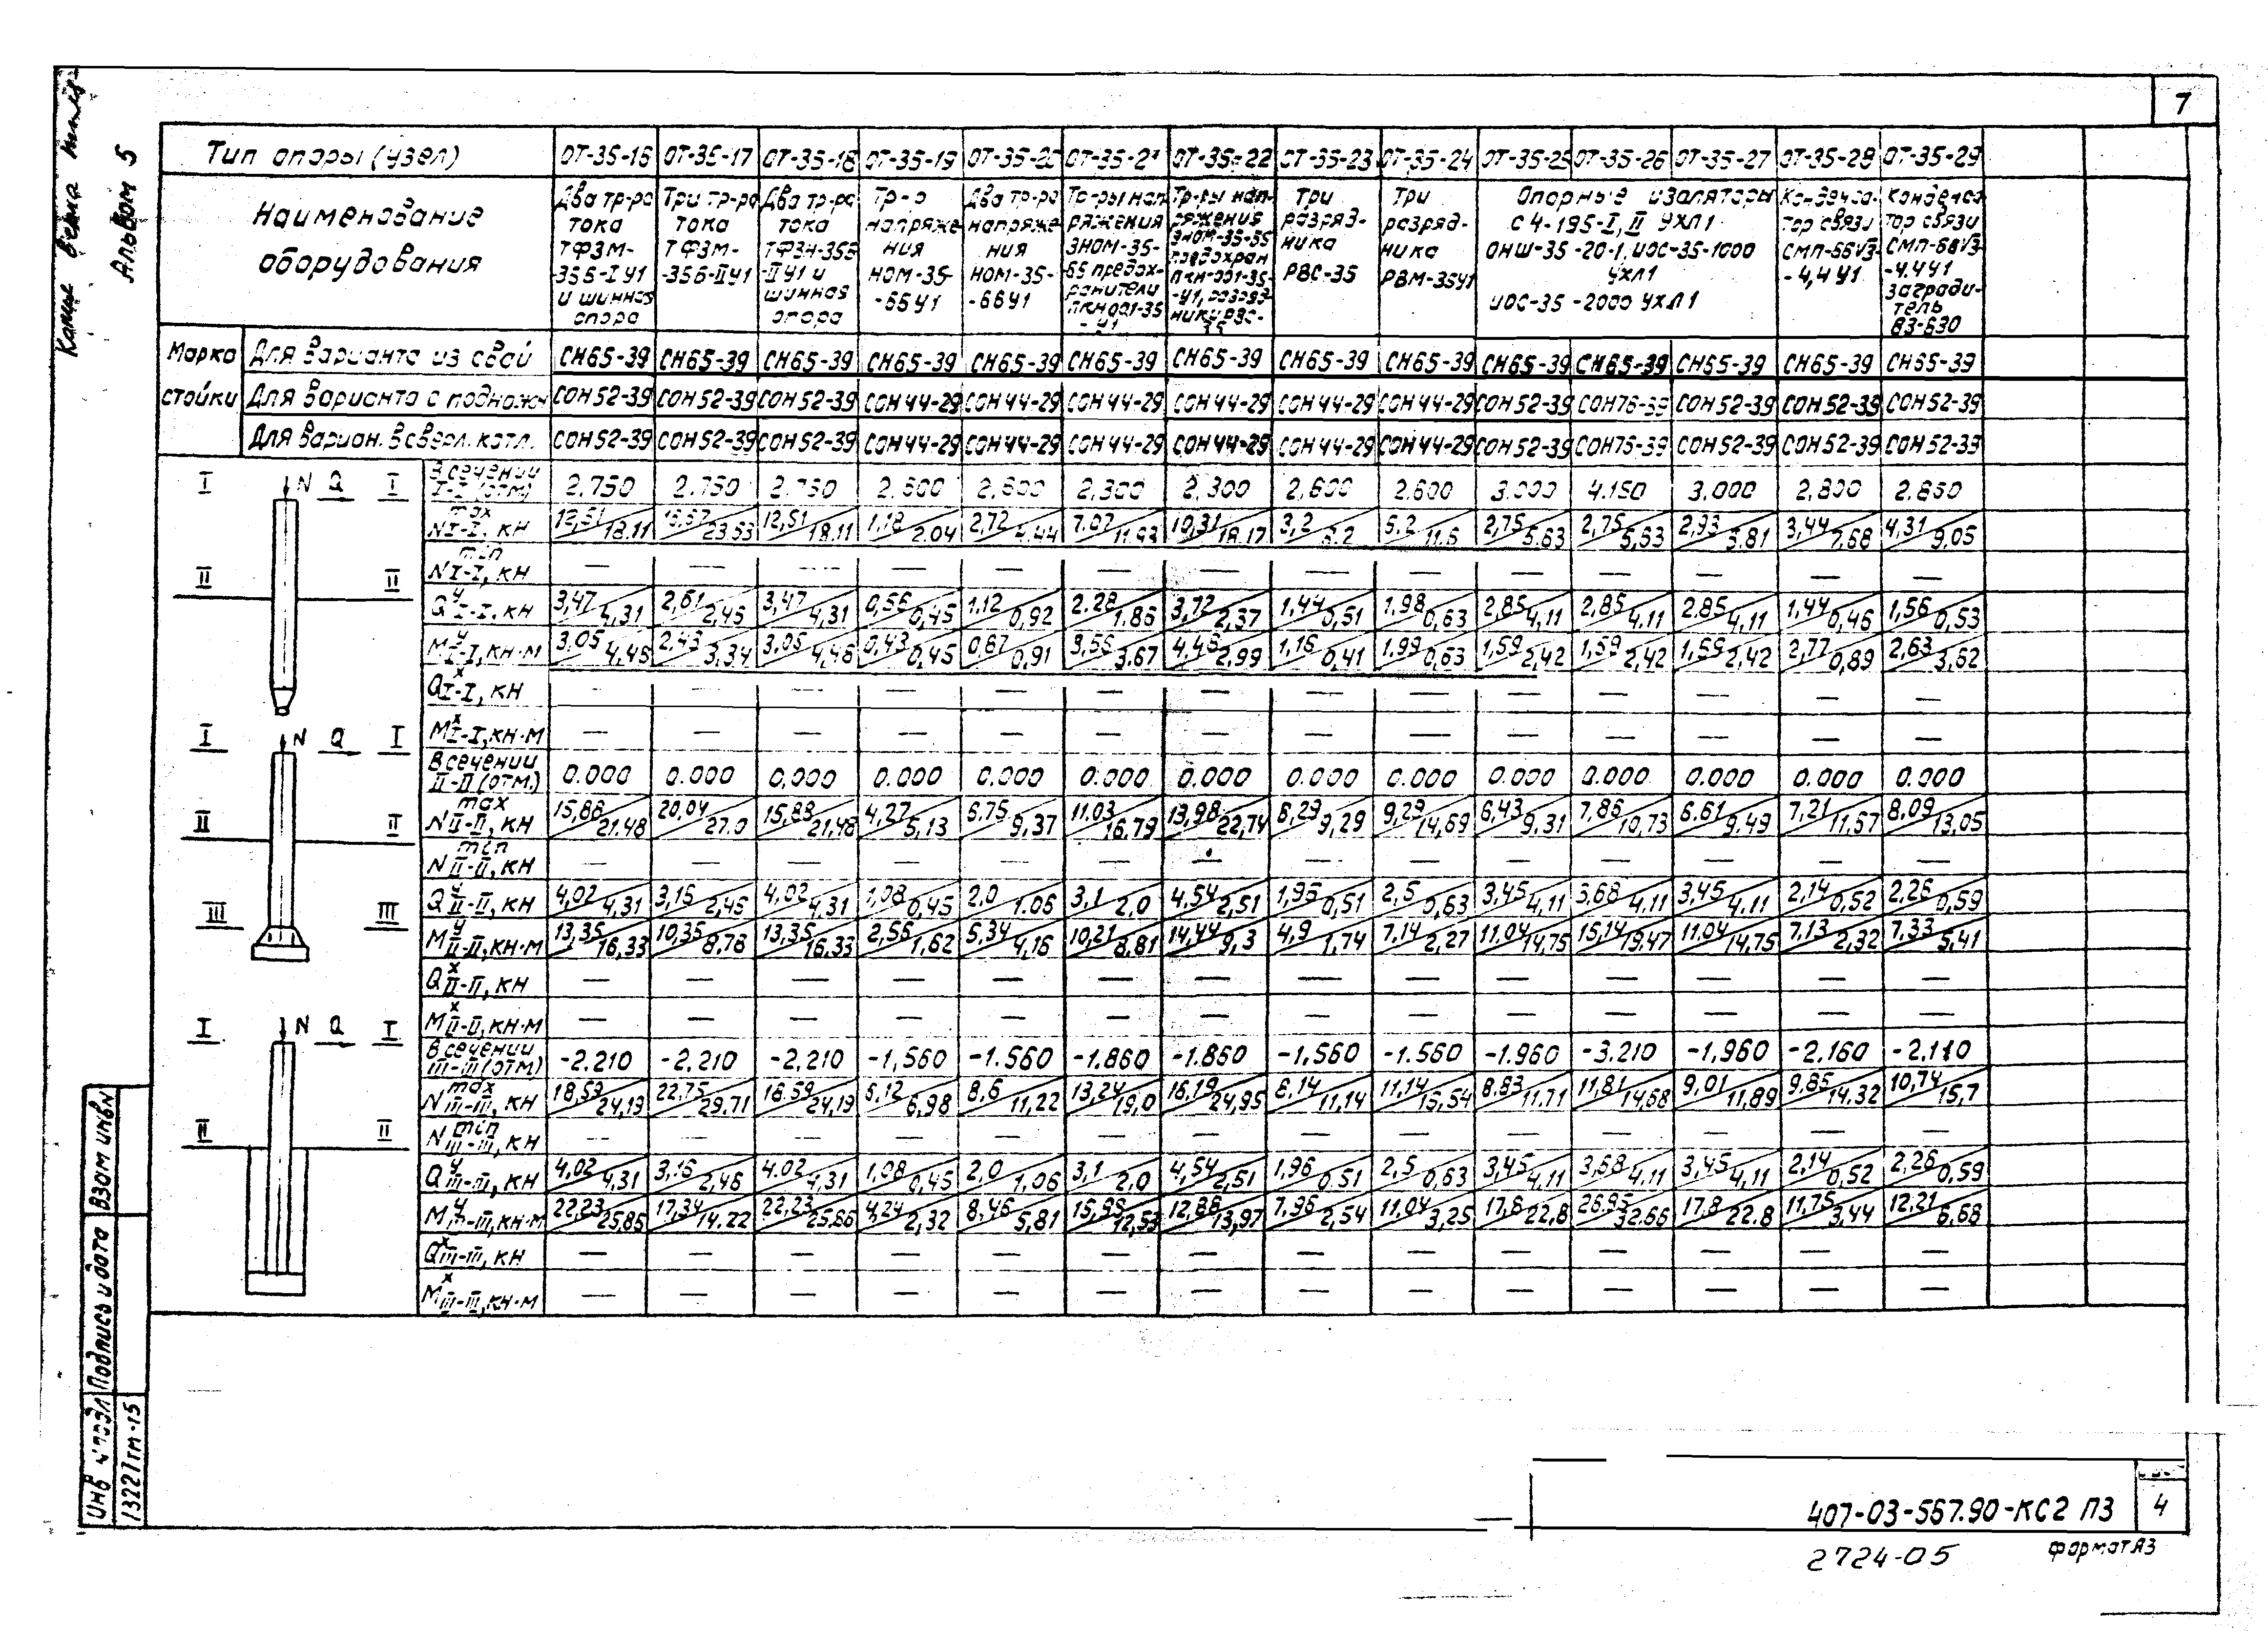 7
Альбом 5
Тип опоры (узел) ОТ-35-16 ОТ-35-17 ОТ-35-18 ОТ-35-19 ОТ-35-20 ОТ-35-21 ОТ-35-22 ОТ-35-23 ОТ-35-24 ОТ-35-25 ОТ-35-26 ОТ-35-27 ОТ-35-28 ОТ-35-29
Наименование оборудования
Два тр-ра тока ТФЗМ-35Б-I У1 и шинная опора
Три тр-ра тока ТФЗМ-35Б-II У1
Два тр-ра тока ТФЗН-35Б-II У1 и шинная опора
Тр-р напряжения НОМ-35-66У1
Два тр-ра напряжения НОМ-35-66У1
Тр-ры напряжения ЗНОМ-35-65 предохранители ПКН001-35-У1
Тр-ры напряжения ЗНОМ-35-65 предохран ПКН-001-35-У1, разрядники РВС-35
Три разрядника РВС-35
Три разрядника РВМ-35У1
Опорные изоляторы С4-195-I, II УХЛ1 ОНШ-35-20-1, ИОС-35-1000 УХЛ1 ИОС-35-2000 УХЛ1
Конденсатор связи СМП-66√3-4,4 У1
Конденсатор связи СМП-66√3-4,4У1 заградитель ВЗ-630
Марка стойки
Для варианта из свай СН65-39 СН65-39 СН65-39 СН65-39 СН65-39 СН65-39 СН65-39 СН65-39 СН65-39 СН65-39 СН65-39 СН65-39 СН65-39 СН65-39
Для варианта с поднож. СОН52-39 СОН52-39 СОН52-39 СОН44-29 СОН44-29 СОН44-29 СОН44-29 СОН44-29 СОН44-29 СОН52-39 СОН76-39 СОН52-39 СОН52-39 СОН52-39
Для вариан. в сверл. котл. СОН52-39 СОН52-39 СОН52-39 СОН44-29 СОН44-29 СОН44-29 СОН44-29 СОН44-29 СОН44-29 СОН52-39 СОН76-39 СОН52-39 СОН52-39 СОН52-39
В сечении I-I (отм) 2.750 2.750 2.750 2.600 2.600 2.300 2.300 2.600 2.600 3.000 4.150 3.000 2.800 2.850
N max I-I, кН 12,51/18.11 16,67/23.63 12,51/18.11 1,18/2.04 2,72/4.44 7.07/11.93 10,31/18.17 3,2/6.2 5.2/11.6 2,75/5.63 2,75/5,63 2,93/5.81 3,44/7,68 4,31/9,05
N min I-I, кН — — — — — — — — — — — — — —
Q y I-I, кН 3,47/4,31 2,61/2,46 3,47/4,31 0,56/0,45 1.12/0,92 2.28/1.86 3,72/2,37 1,44/0,51 1,98/0,63 2,85/4,11 2,85/4,11 2,85/4,11 1,44/0,46 1,56/0,53
M y I-I, кН·м 3,05/4,46 2,43/3,34 3,05/4,46 0,43/0,45 0,67/0,91 3,56/3,67 4,46/2,99 1,16/0,41 1,99/0,63 1,59/2,42 1,59/2,42 1,59/2,42 2,77/0,89 2,63/3,62
Q x I-I, кН — — — — — — — — — — — — — —
M x I-I, кН·м — — — — — — — — — — — — — —
В сечении II-II (отм.) 0.000 0.000 0,000 0.000 0.000 0.000 0.000 0.000 0.000 0.000 0.000 0.000 0.000 0.000
N max II-II, кН 15,88/21.48 20,04/27.0 15,88/21,48 4,27/5,13 6.75/9,37 11.03/16.79 13,98/22,74 6,29/9,29 9,29/14,69 6,43/9,31 7,86/10,73 6.61/9.49 7,21/11,57 8,09/13,05
N min II-II, кН — — — — — — — — — — — — — —
Q y II-II, кН 4,02/4,31 3,16/2,46 4,02/4,31 1,08/0,45 2.0/1.06 3,1/2,0 4,54/2,51 1,96/0,51 2,5/0,63 3,45/4,11 3,68/4,11 3,45/4.11 2,14/0,52 2,26/0,59
M y II-II, кН·м 13,35/16,33 10,35/8,78 13,35/16,33 2,56/1,62 5,34/4,16 10,21/8,81 14,44/9,3 4,9/1,74 7,14/2,27 11.04/14,75 15,14/19.47 11,04/14,75 7.13/2,32 7,33/5,41
Q x II-II, кН — — — — — — — — — — — — — —
M x II-II, кН·м — — — — — — — — — — — — — —
В сечении III-III (отм) -2.210 -2,210 -2,210 -1,560 -1.560 -1.860 -1.860 -1,560 -1.560 -1.960 -3.210 -1,960 -2,160 -2,110
N max III-III, кН 18,59/24,19 22,75/29.71 18.59/24,19 6,12/6,98 8,6/11,22 13,24/19,0 16,19/24,95 8,14/11,14 11,14/16,54 8.83/11.71 11,81/14,68 9,01/11,89 9,85/14,32 10,74/15,7
N min III-III, кН — — — — — — — — — — — — — —
Q y III-III, кН 4,02/4,31 3,16/2,46 4.02/4,31 1,08/0,45 2.0/1,06 3,1/2.0 4,54/2,51 1,96/0,51 2,5/0,63 3,45/4,11 3,68/4,11 3,45/4,11 2,14/0,52 2,26/0,59
M y III-III, кН·м 22,23/25,86 17,34/14.22 22,23/25,86 4,24/2,32 8,46/5,81 15,98/12,53 12,88/13,97 7,96/2,54 11,04/3,25 17,8/22,8 26,95/32.66 17,8/22.8 11,75/3,44 12,21/6,68
Q x III-III, кН — — — — — — — — — — — — — —
M x III-III, кН·м — — — — — — — — — — — — — —
I N Q I
II II
I N Q I
II II
III III
I N Q I
II II
Взам инв N
Подпись и дата
Инв N подл
13227тм-15
407-03-567.90-КС2 ПЗ
4
2724-05
Формат А3